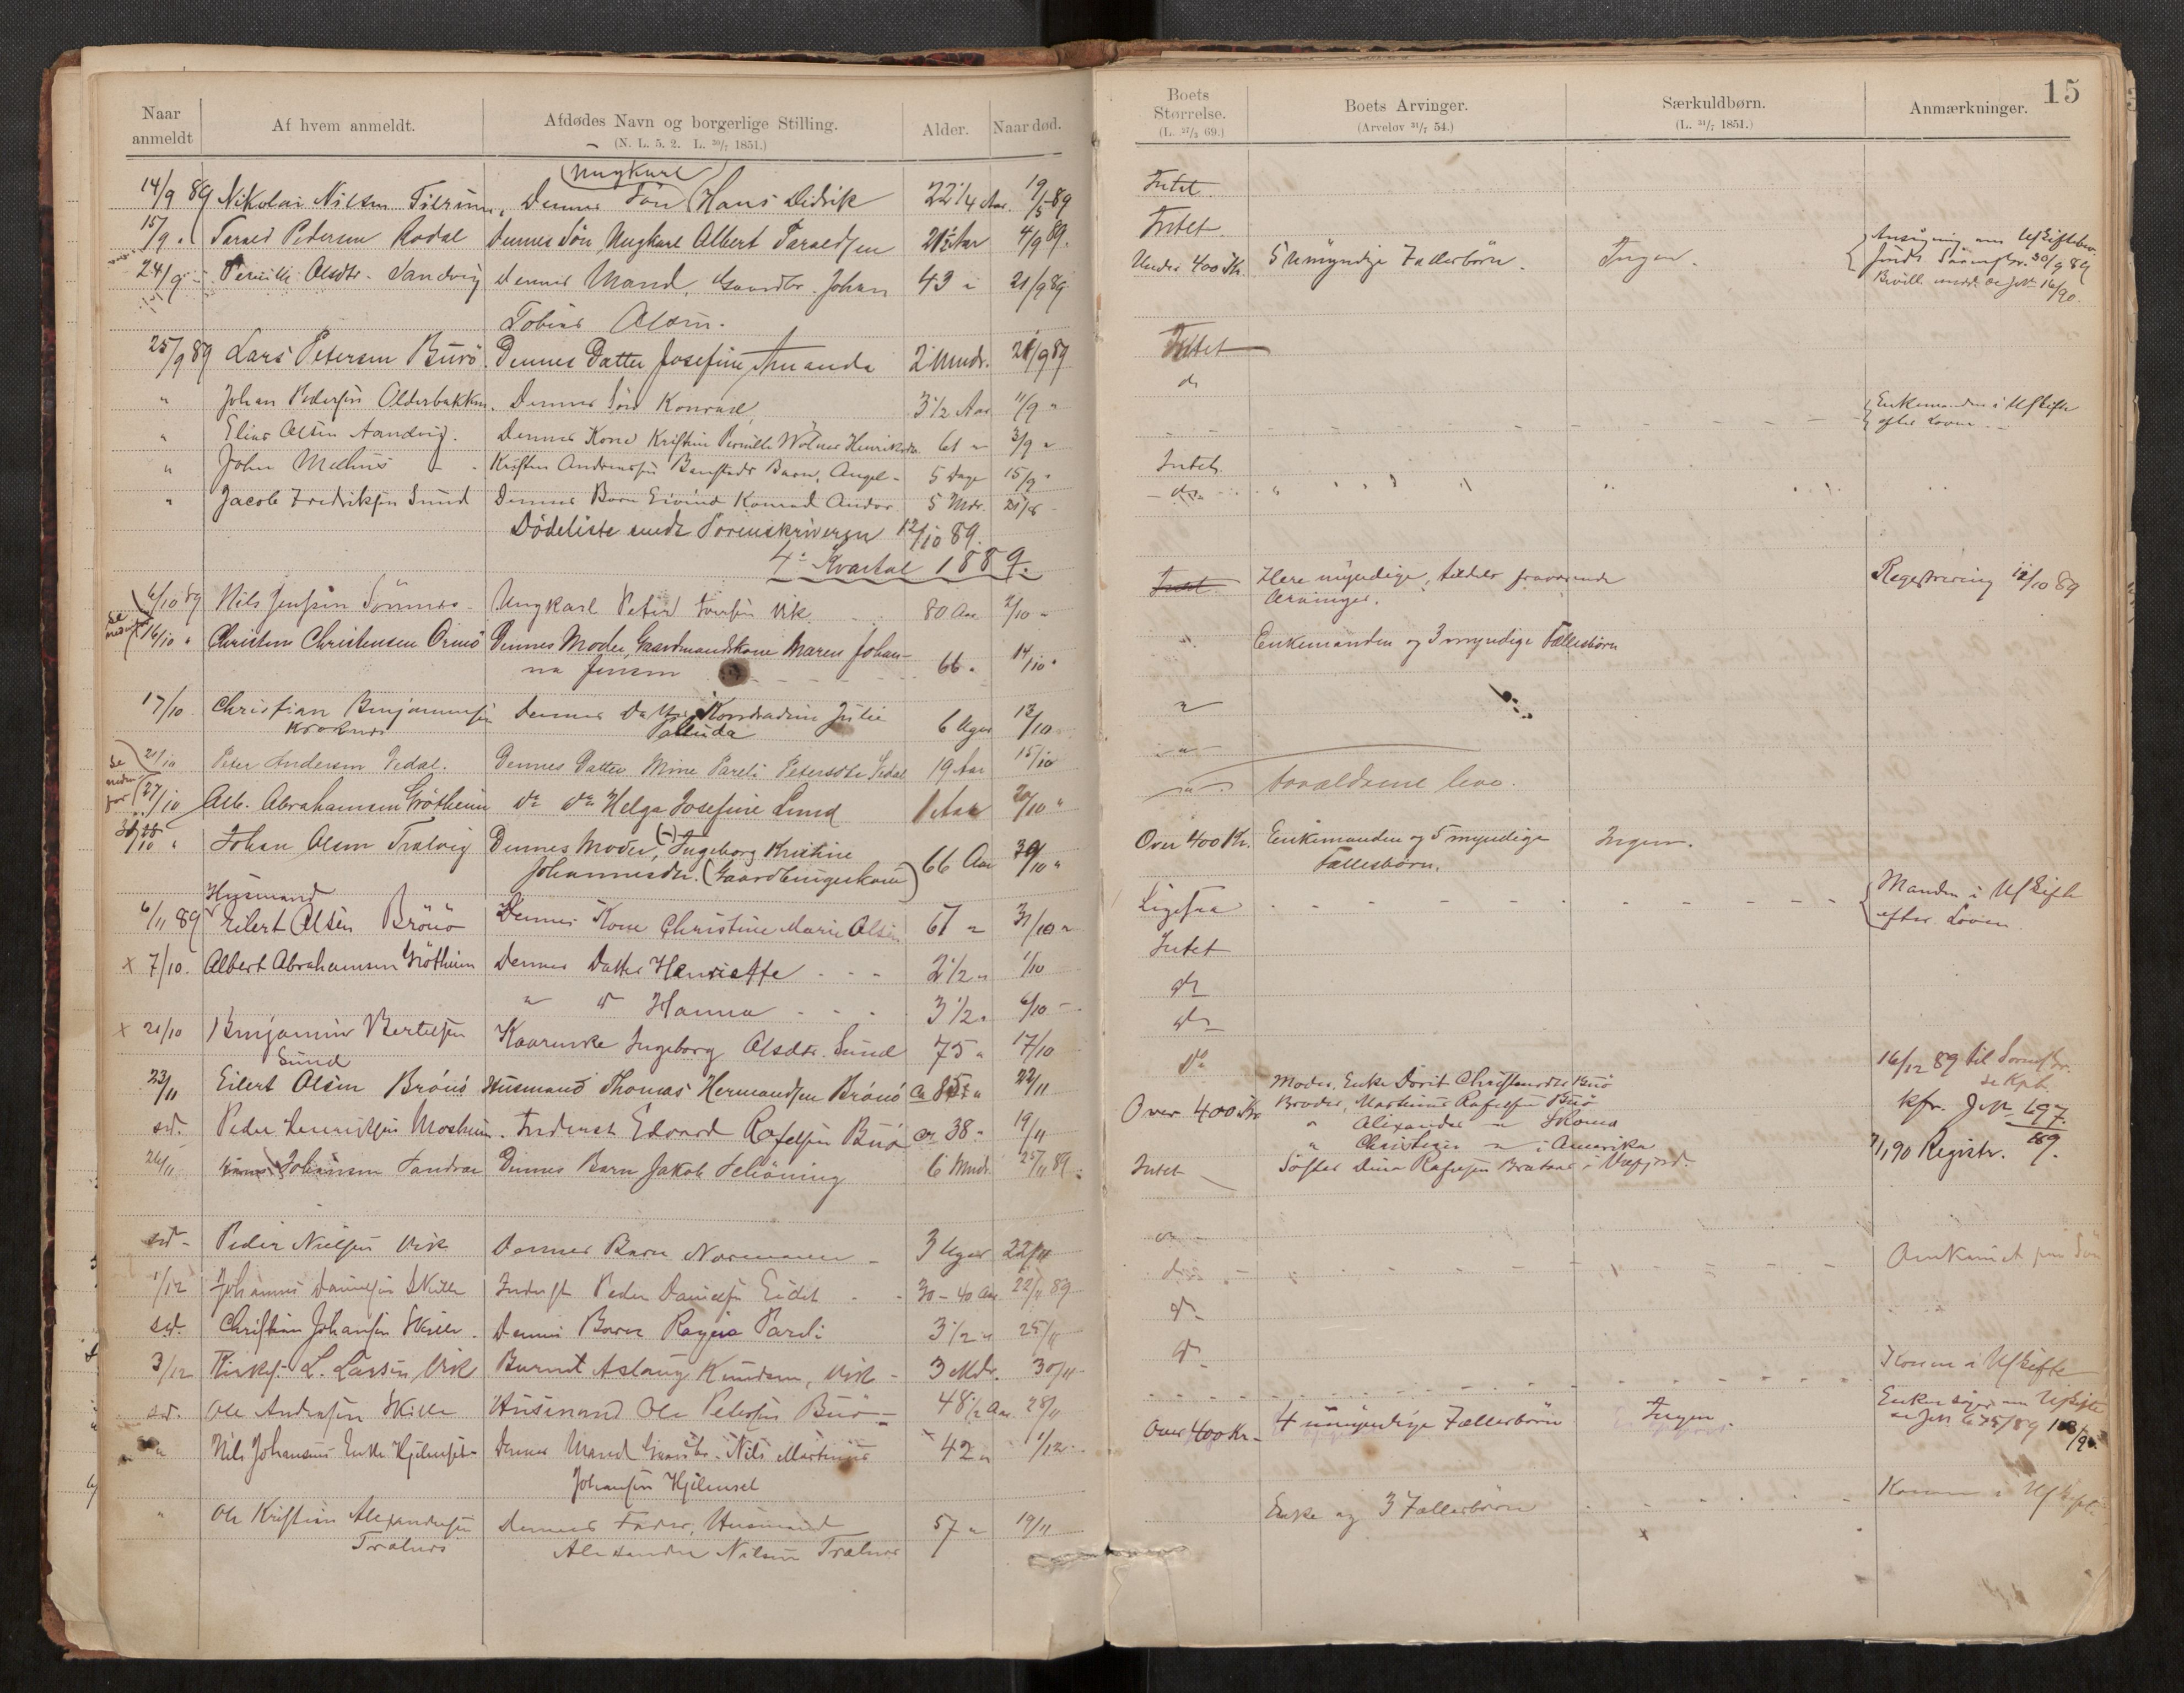 15
Naar anmeldt
Af hvem anmeldt.
Afdødes Navn og borgerlige Stilling.
(N. L. 5. 2. L. 30/7 1851.)
Alder.
Naar død.
Boets Størrelse.
(L. 27/3 69.)
Boets Arvinger.
(Arvelov 31/7 54.)
Særkuldbørn.
(L. 31/7 1851.)
Anmærkninger.
Ungkarl
14/9 89 Nikolai Nilsen Tilrum, Dennes Søn Hans Didrik 22 1/4 Aar. 19/5 89 Intet.
15/9 " Tarald Pedersen Rodal Dennes Søn, Ungkarl Albert Taraldsen 21 1/2 Aar 4/9 89. Intet.
24/9 - Pernille Olsdtr. Sandvig Dennes Mand, Gaardbr. Johan 43 " 21/9 89 Under 400 Kr. 5 Umyndige Fællesbørn. Ingen. Ansøgning om Uskiftebev.
Tobias Olsen.
25/9 89 Lars Petersen Burø. Dennes Datter Josefine Amanda 2 Mndr. 21/9 89 Intet
" Johan Pedersen Olderbakken. Dennes Søn Konrad 3 1/2 Aar 11/9 " do
" Elias Olsen Sandvig. Dennes Kone Kristine Pernille Henriksdtr. 61 " 3/9 " Enkemanden i Uskifte
efter Loven.
" John Melhus Kristen Andreassen Barn, 5 Dage 15/9 " Intet.
" Jacob Fredriksen Sund Dennes Barn Eivind Konrad Andor 5 Mdr. do
Dødeliste sendt Sorenskriveren 12/10 89.
4. Kvartal 1889.
6/10 89 Nils Jensen Sømnes Ungkarl Peter Iversen Vik 80 Aar 2/10 " Intet Flere myndige, tildels fraværende Registrering 12/10 89
Arvinger.
16/10 " Christen Christensen Ormø Dennes Moder, Gaardmandskone Maren Johan- 66 " 14/10 " " Enkemanden og 3 myndige Fællesbørn
na Jensen
17/10 Christian Benjaminsen Dennes Datter Kondradine Julie 6 Uger 13/10 "
Palluda
21/10 Peter Andersen Sedal. Dennes Datter Mine Pareli Petersdtr Sedal 19 Aar 15/10 "
27/10 Alb. Abrahamsen Grøtheim do do Helga Josefine Lund 1 Aar 20/10 " " Forældrene leve.
Johan Olsen Tralvig Dennes Moder, Ingeborg Kristine 66 Aar 30/10 " Over 400 Kr. Enkemanden og 5 myndige Ingen.
Johannesdtr. (Gaardbrugerkone) Fællesbørn.
Husmand
6/11 89 Eilert Olsen Brønø Dennes Kone Christine Marie Olsen 61 " 31/10 " Ligesaa Manden i Uskifte
efter Loven.
x 7/10. Albert Abrahamsen Grøtheim Dennes Datter Henriette 2 1/2 " 1/10 Intet
" do Hanna 3 1/2 " 6/10 - do
x 21/10 Benjamin Bertelsen Kaarinke Ingeborg Olsdtr. Sund 75 " 17/10 do
Sund
23/11 Eilert Olsen Brønø Husmand Thomas Hermandsen Brønø 22/11 do
16/12 89 til Sorenskr.
Moder, Enke Dorit Christensdtr Buø
s.d. Peder Henriksen Mosheim. Inderst Edvard Rafelsen Buø ca 38 " 19/11 Over 400 Kr Broder, Martinus Rafelsen Buø kfr. 697/89.
" Alexander "
" Christian " i Amerika
26/11 Johansen Tandrae Dennes Barn Jakob Schöning 6 Mndr. 25/11 89 Intet Søster Dina Rafelsen i Velfjord. 7/1 90 Registr.
s.d. Peder Nielsen Vik Dennes Barn Normann 3 Uger 22/11 do
1/12 Johannes Danielsen Skille Inderst Peder Danielsen Eidet 30-40 Aar 22/11 89 do Omkommet paa Søen
s.d. Christian Johansen Skille. Dennes Barn Ragna Pareli 3 1/2 " 25/11 do
3/12 Kirkes. L. Larsen Vik Barnet Aslaug Knudsen, Vik 3 Mdr. 30/11 do
s.d. Ole Andersen Skille Husmand Ole Petersen Buø 48 1/2 Aar 28/11 Konen i Uskifte
" Nils Johansens Enke Hjelmset Dennes Mand Gaardbr. Nils Martinus 42 " 1/12 Over 400 Kr. 4 umyndige Fællesbørn Ingen. Enken søger om Uskifte
Johansen Hjelmset
" Ole Kristian Alexandersen Dennes Fader, Husmand 57 " 19/11 Enke og 3 Fællesbørn Konen i Uskifte
Tralnes Alexander Nilsen Tralnes